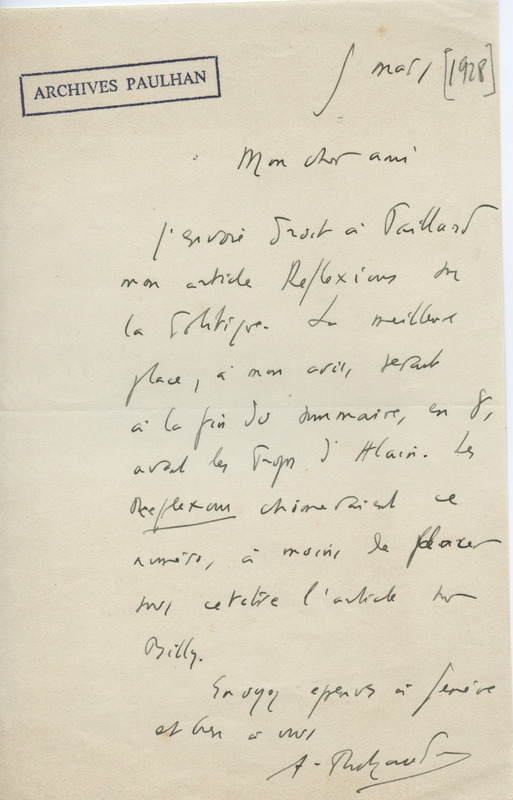 ARCHIVES PAULHAN
5 mars [1928]
Mon cher ami
J'envoie droit à Paillard
mon article Réflexions sur
la Politique. La meilleure
place, à mon avis, serait
à la fin du sommaire, en 8,
avant les Propos d'Alain. Les
Réflexions chômeraient ce
numéro, à moins de placer
sous ce titre l'article sur
Billy.
Envoyez épreuves à Genève
et bien à vous
A. Thibaudet